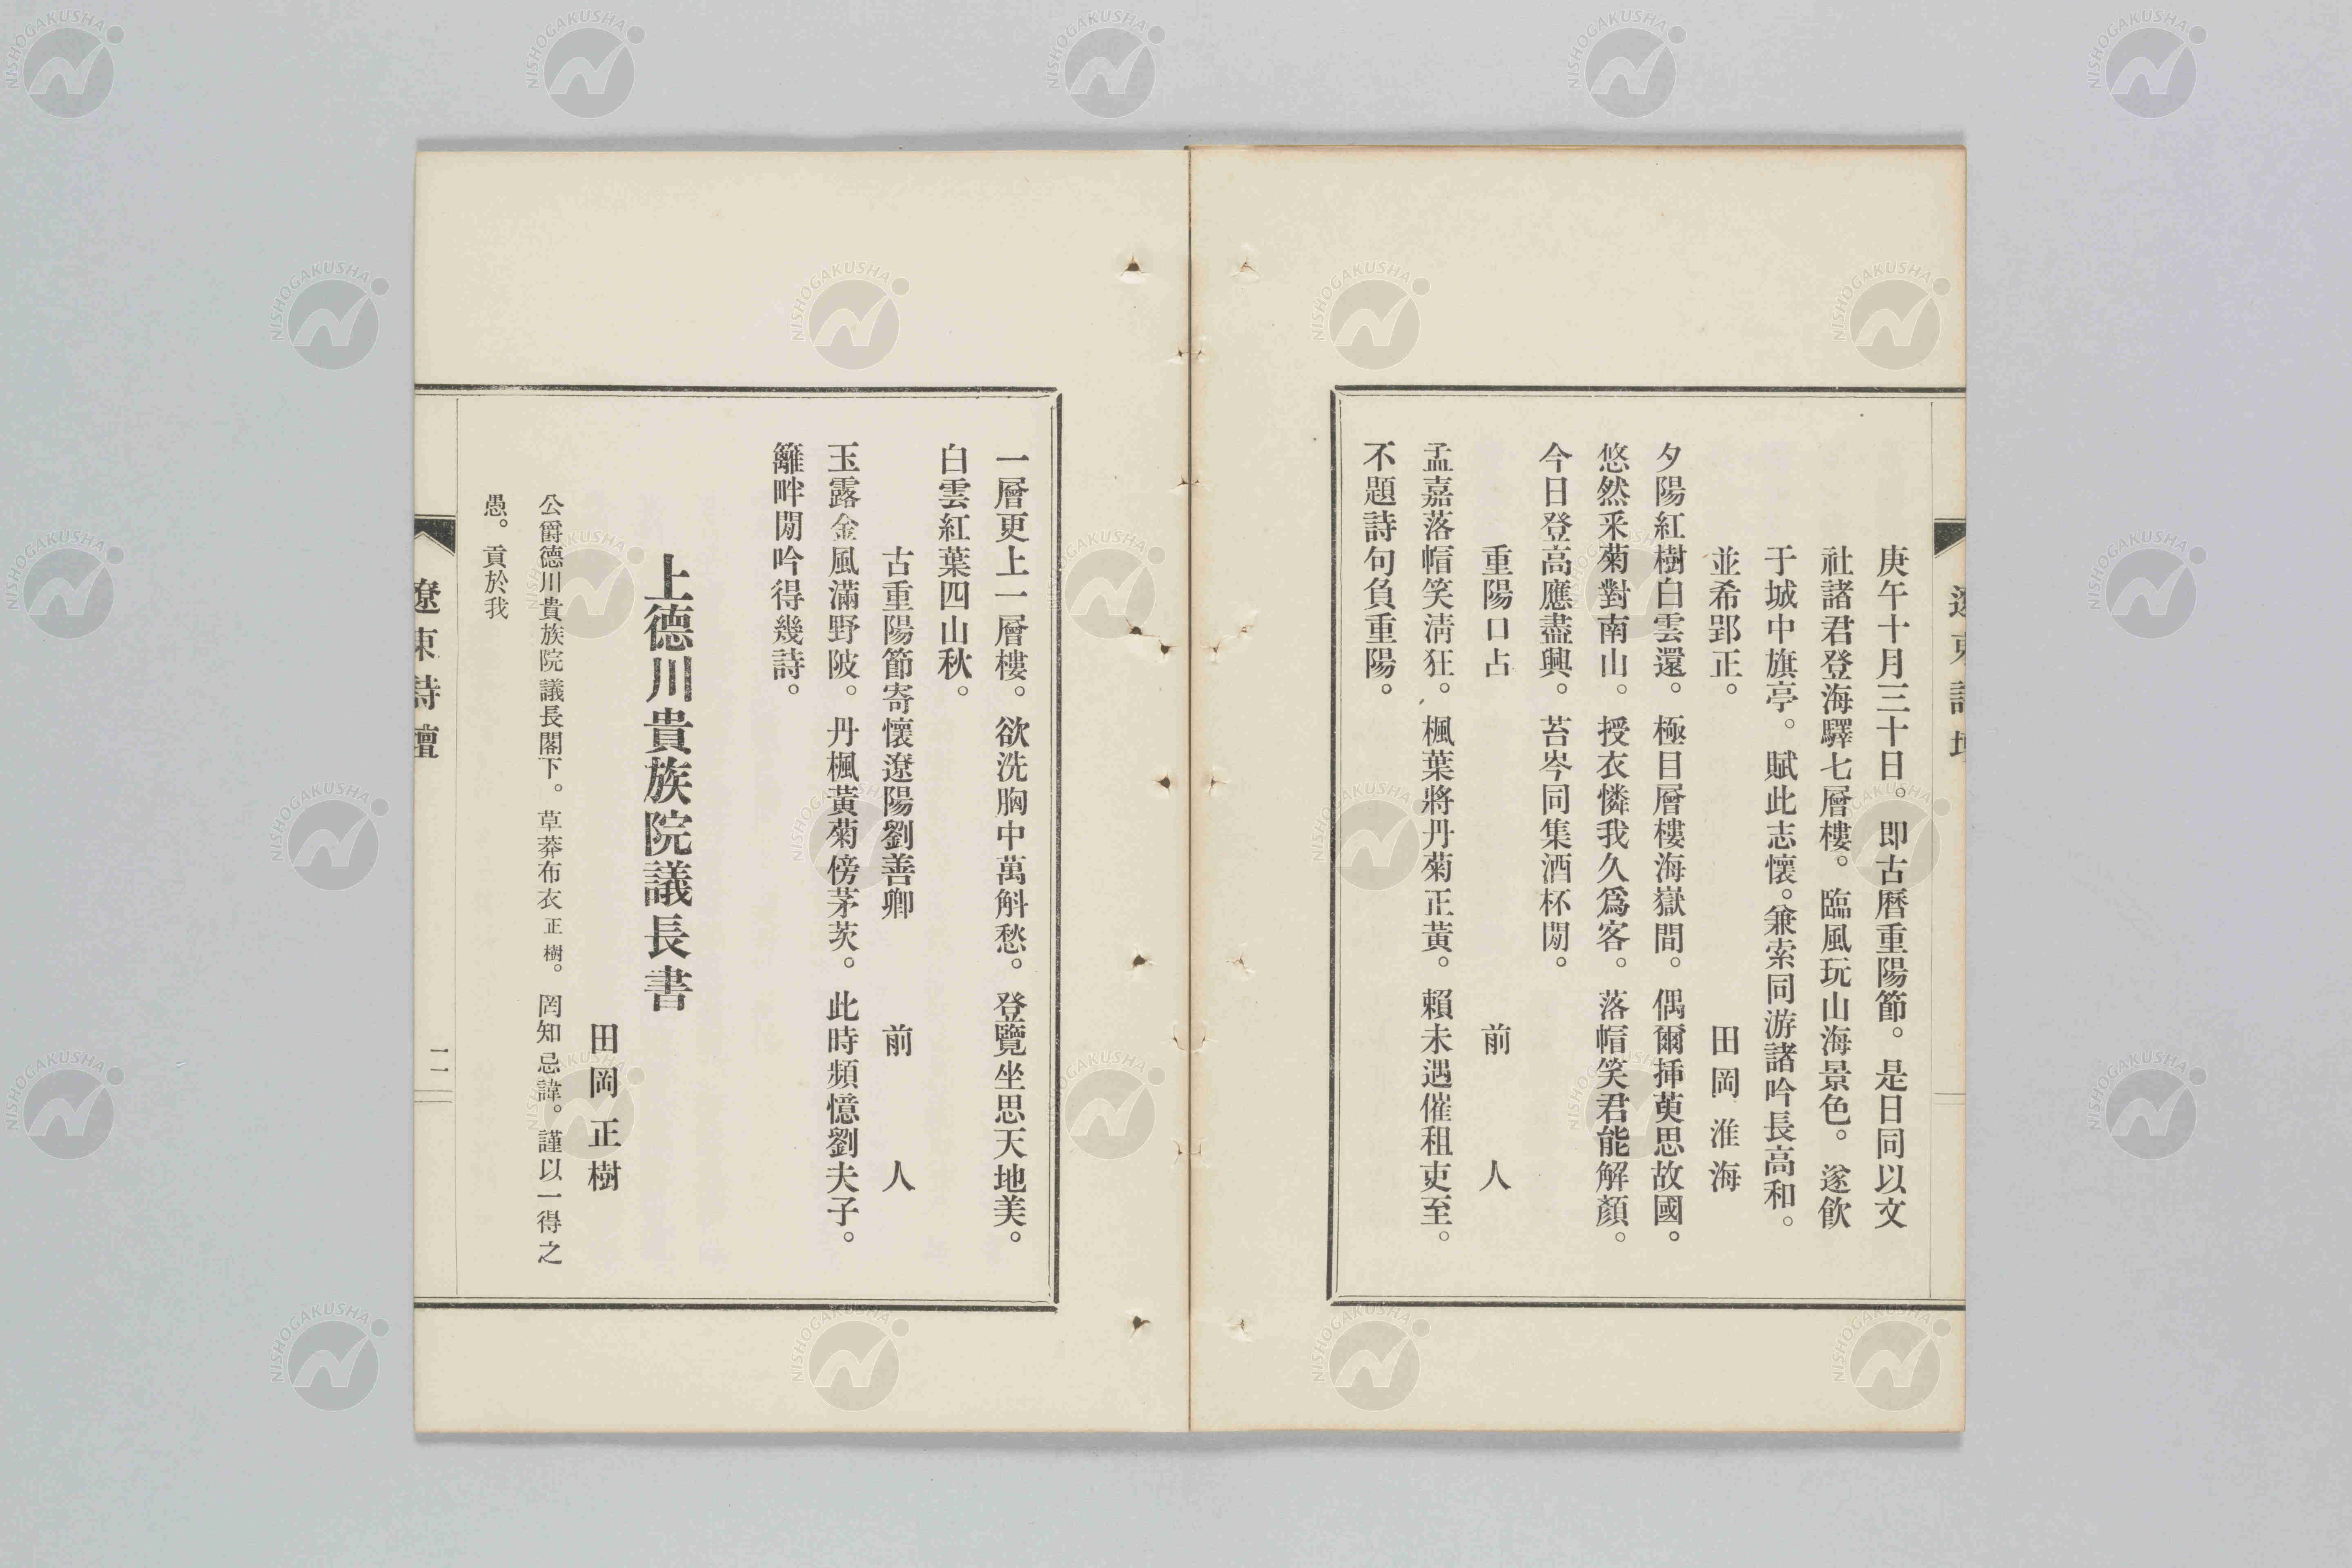 庚午十月三十日。即古曆重陽節。是日同以文
社諸君登海驛七層樓。臨風玩山海景色。遂飮
于城中旗亭。賦此志懷。兼索同游諸吟長高和。
並希郢正。
田岡淮海
夕陽紅樹白雲還。極目層樓海嶽間。偶爾揷萸思故國。
悠然采菊對南山。授衣憐我久爲客。落帽笑君能解顏。
今日登高應盡興。苔岑同集酒杯閒。
重陽口占 前人
孟嘉落帽笑淸狂。楓葉將丹菊正黃。賴未遇催租吏至。
不題詩句負重陽。
一層更上一層樓。欲洗胸中萬斛愁。登覽坐思天地美。
白雲紅葉四山秋。
古重陽節寄懷遼陽劉善卿 前人
玉露金風滿野陂。丹楓黃菊傍茅茨。此時頻憶劉夫子。
籬畔閒吟得幾詩。
上德川貴族院議長書
田岡正樹
公爵德川貴族院議長閣下。草莽布衣正樹。罔知忌諱。謹以一得之
愚。貢於我
遼東詩壇
二
NISHOGAKUSHA